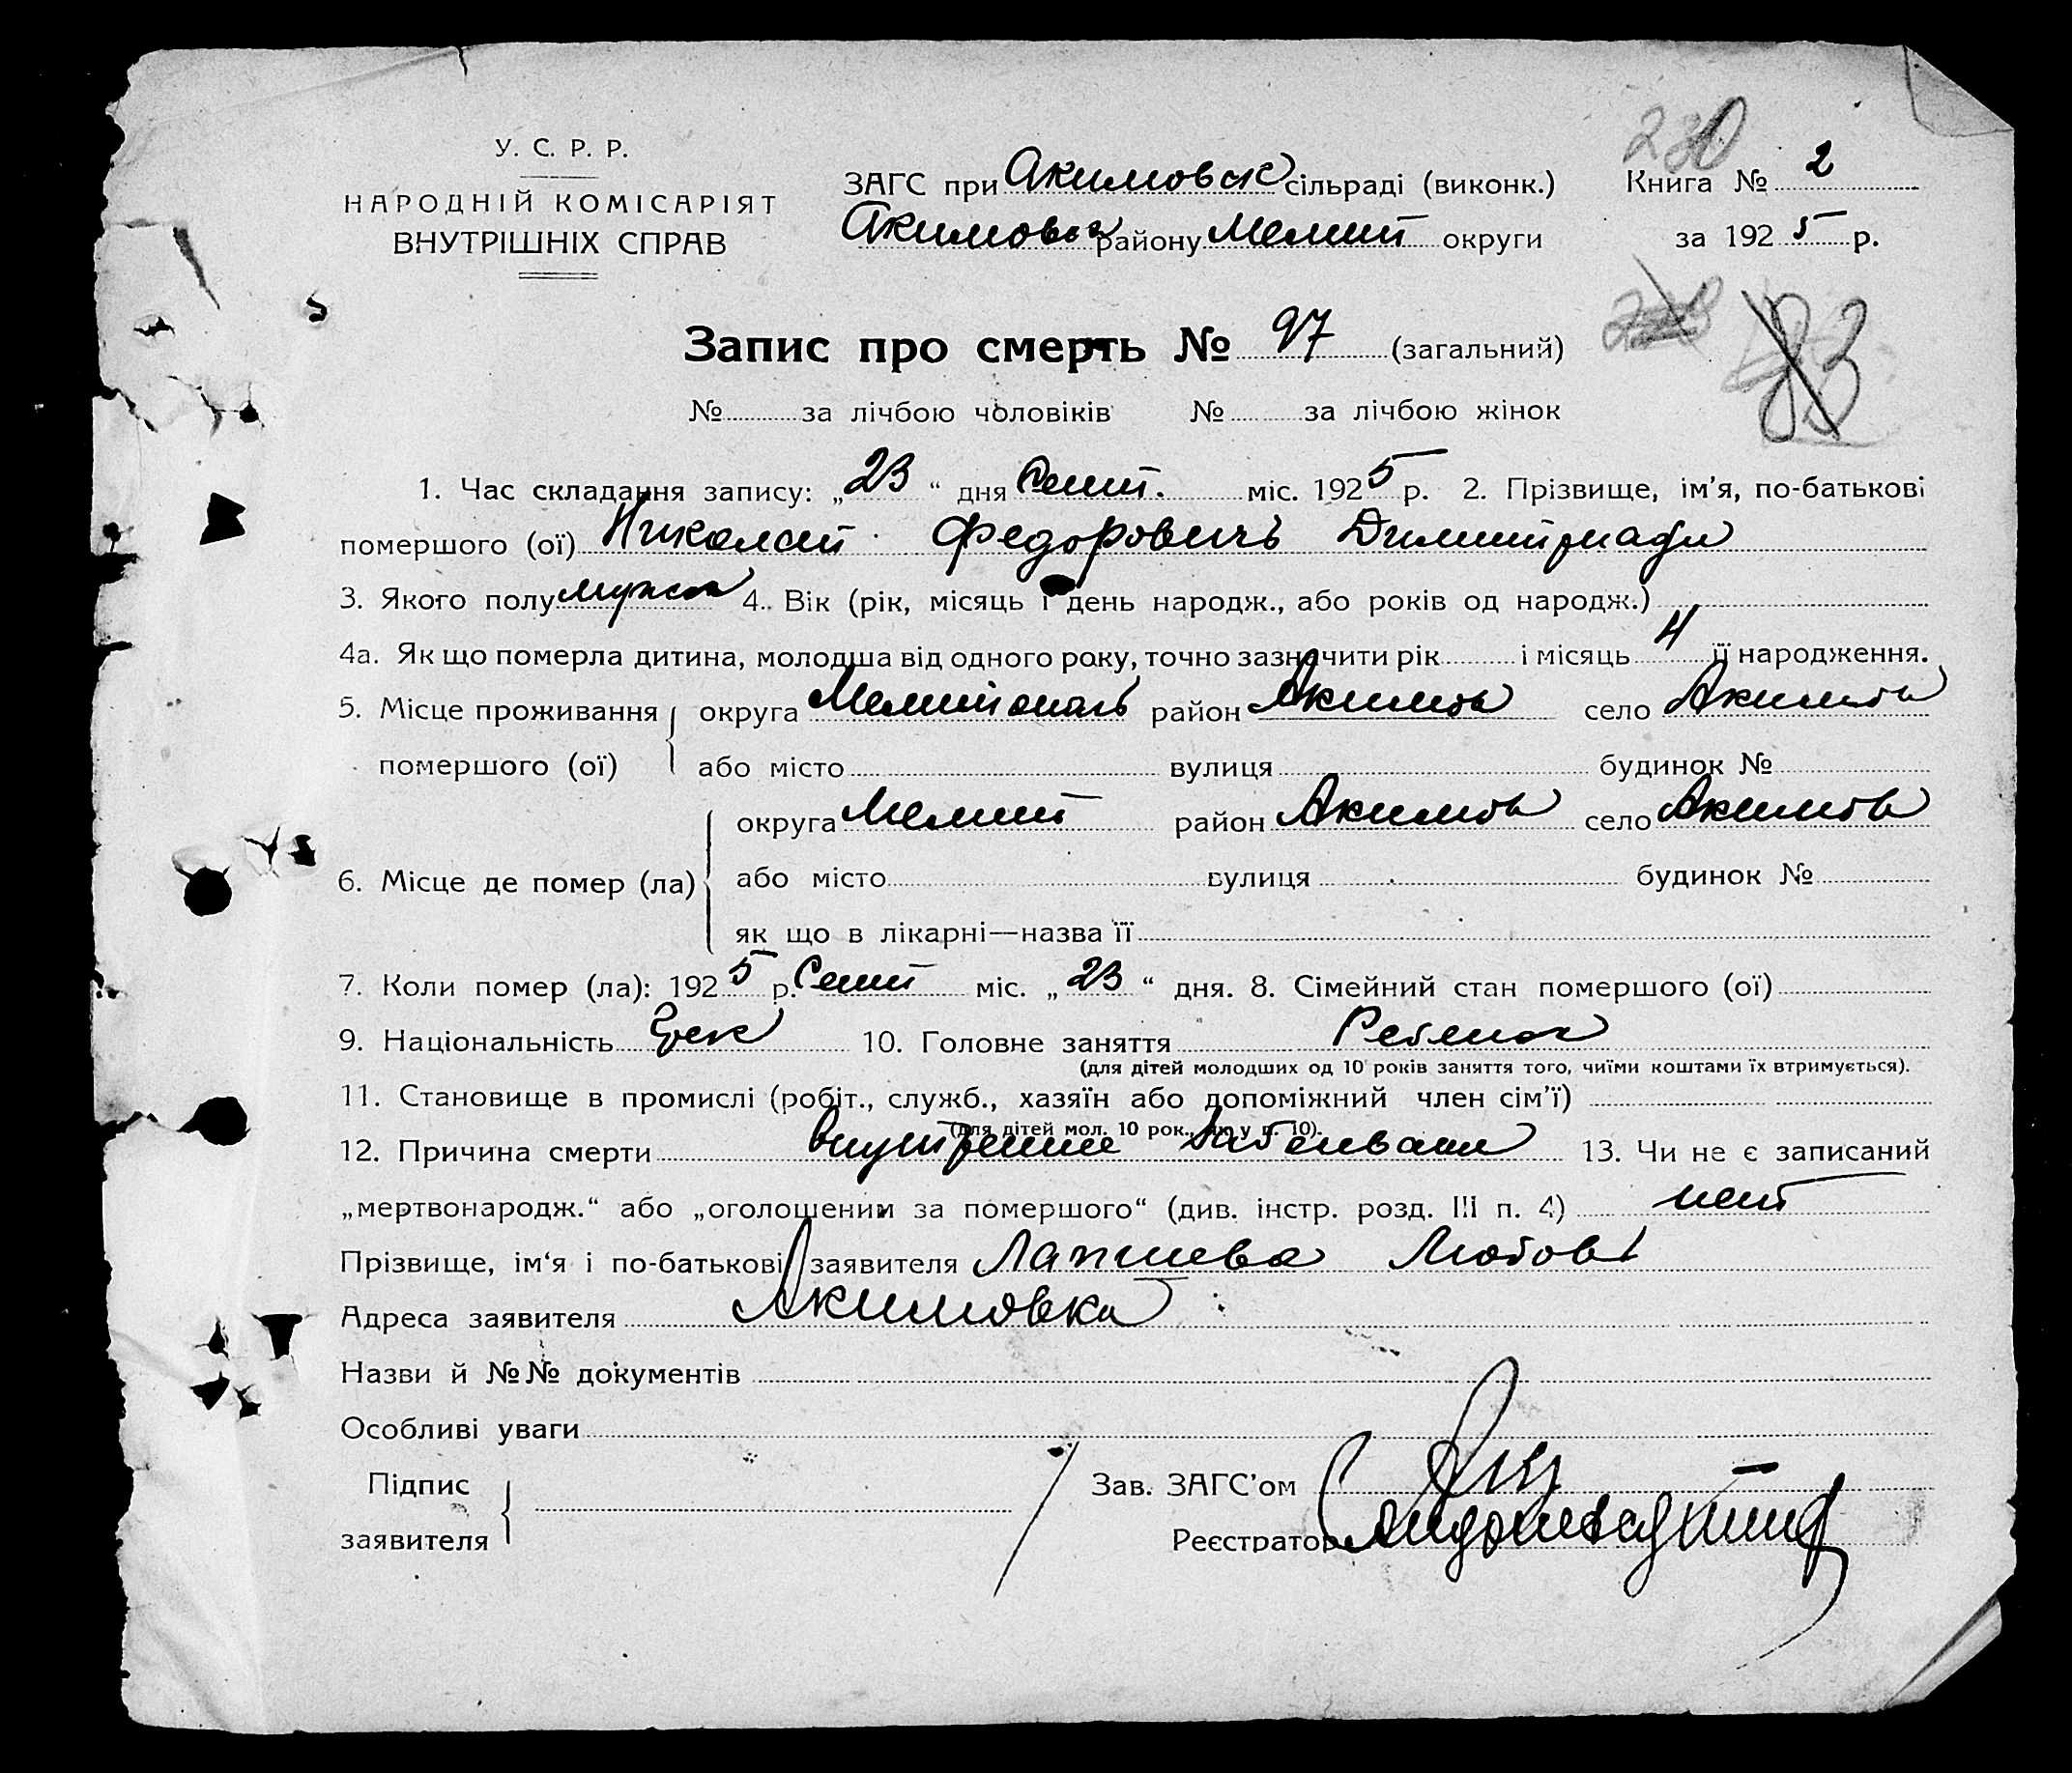 230
У. С. Р. Р.
НАРОДНІЙ КОМІСАРІЯТ
ВНУТРІШНІХ СПРАВ
ЗАГС при Акимовск сільраді (виконк.) Книга № 2
Акимовск району Мелит округи за 1925 р.
83
Запис про смерть № 97 (загальний)
№ за лічбою чоловіків № за лічбою жінок
1. Час складання запису: „23“ дня Сент. міс. 1925 р. 2. Прізвище, ім'я, по-батькові
помершого (ої) Николай Федоровичъ Димитриади
3. Якого полу мужск 4. Вік (рік, місяць і день народж., або років од народж.)
4а. Як що померла дитина, молодша від одного року, точно зазначити рік і місяць 4 її народження.
5. Місце проживання округа Мелитополь район Акимов село Акимов
помершого (ої) або місто вулиця будинок №
округа Мелит район Акимов село Акимов
6. Місце де помер (ла) або місто вулиця будинок №
як що в лікарні—назва її
7. Коли помер (ла): 1925 р. Сент міс. „23“ дня. 8. Сімейний стан помершого (ої)
9. Національність Грек 10. Головне заняття Ребенок
(для дітей молодших од 10 років заняття того, чиїми коштами їх втримується).
11. Становище в промислі (робіт., служб., хазяїн або допоміжний член сім'ї)
(для дітей мол. 10 рок., як у п. 10).
12. Причина смерти внутренние заболевани 13. Чи не є записаний
„мертвонародж.“ або „оголошеним за помершого“ (див. інстр. розд. III п. 4) нет
Прізвище, ім'я і по-батькові заявителя Лапшева Любовь
Адреса заявителя Акимовка
Назви й №№ документів
Особливі уваги
Підпис
заявителя
Зав. ЗАГС'ом
Реєстратор